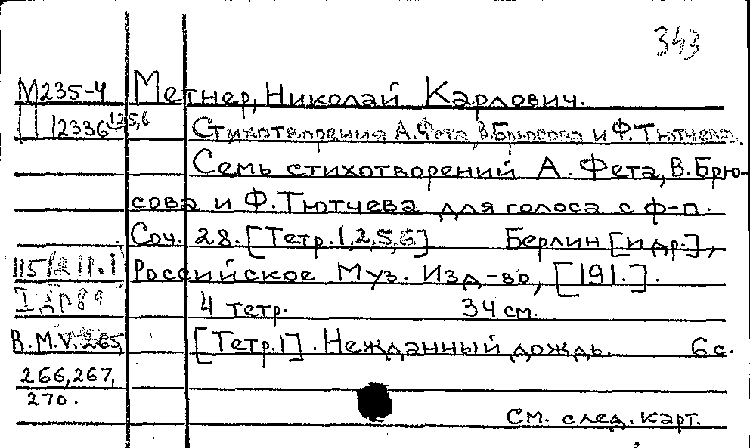 343
М235-4 Метнер, Николай Карлович.
П 12336 1,2,5,6 Стихотворения А.Фета, В.Брюсова и Ф.Тютчева.
Семь стихотворений А. Фета, В. Брю-
сова и Ф. Тютчева для голоса с ф-п.
Соч. 28. [Тетр. 1,2,5,6] Берлин [и др.],
Российское Муз. Изд-во, [191.].
4 тетр. 34 см.
В.М.V. 265, [Тетр. 1]. Нежданный дождь. 6 с.
266, 267,
270.
См. след. карт.